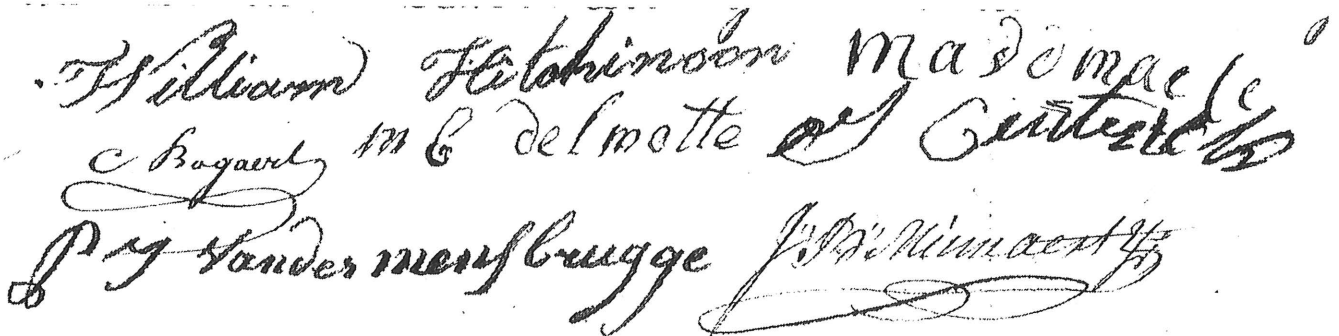 William Hitchinson madomaele
C Bogaert m C delmotte
P J Vandermensbrugge J: B: Minnaert